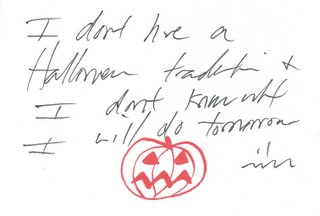 I don't have a
Halloween tradition &
I don't know what
I will do tomorrow